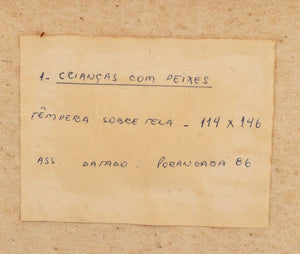 1- CRIANÇAS COM PEIXES
TÊMPERA SOBRE TELA - 114 X 146
ASS. DATADO. PORANGABA 86